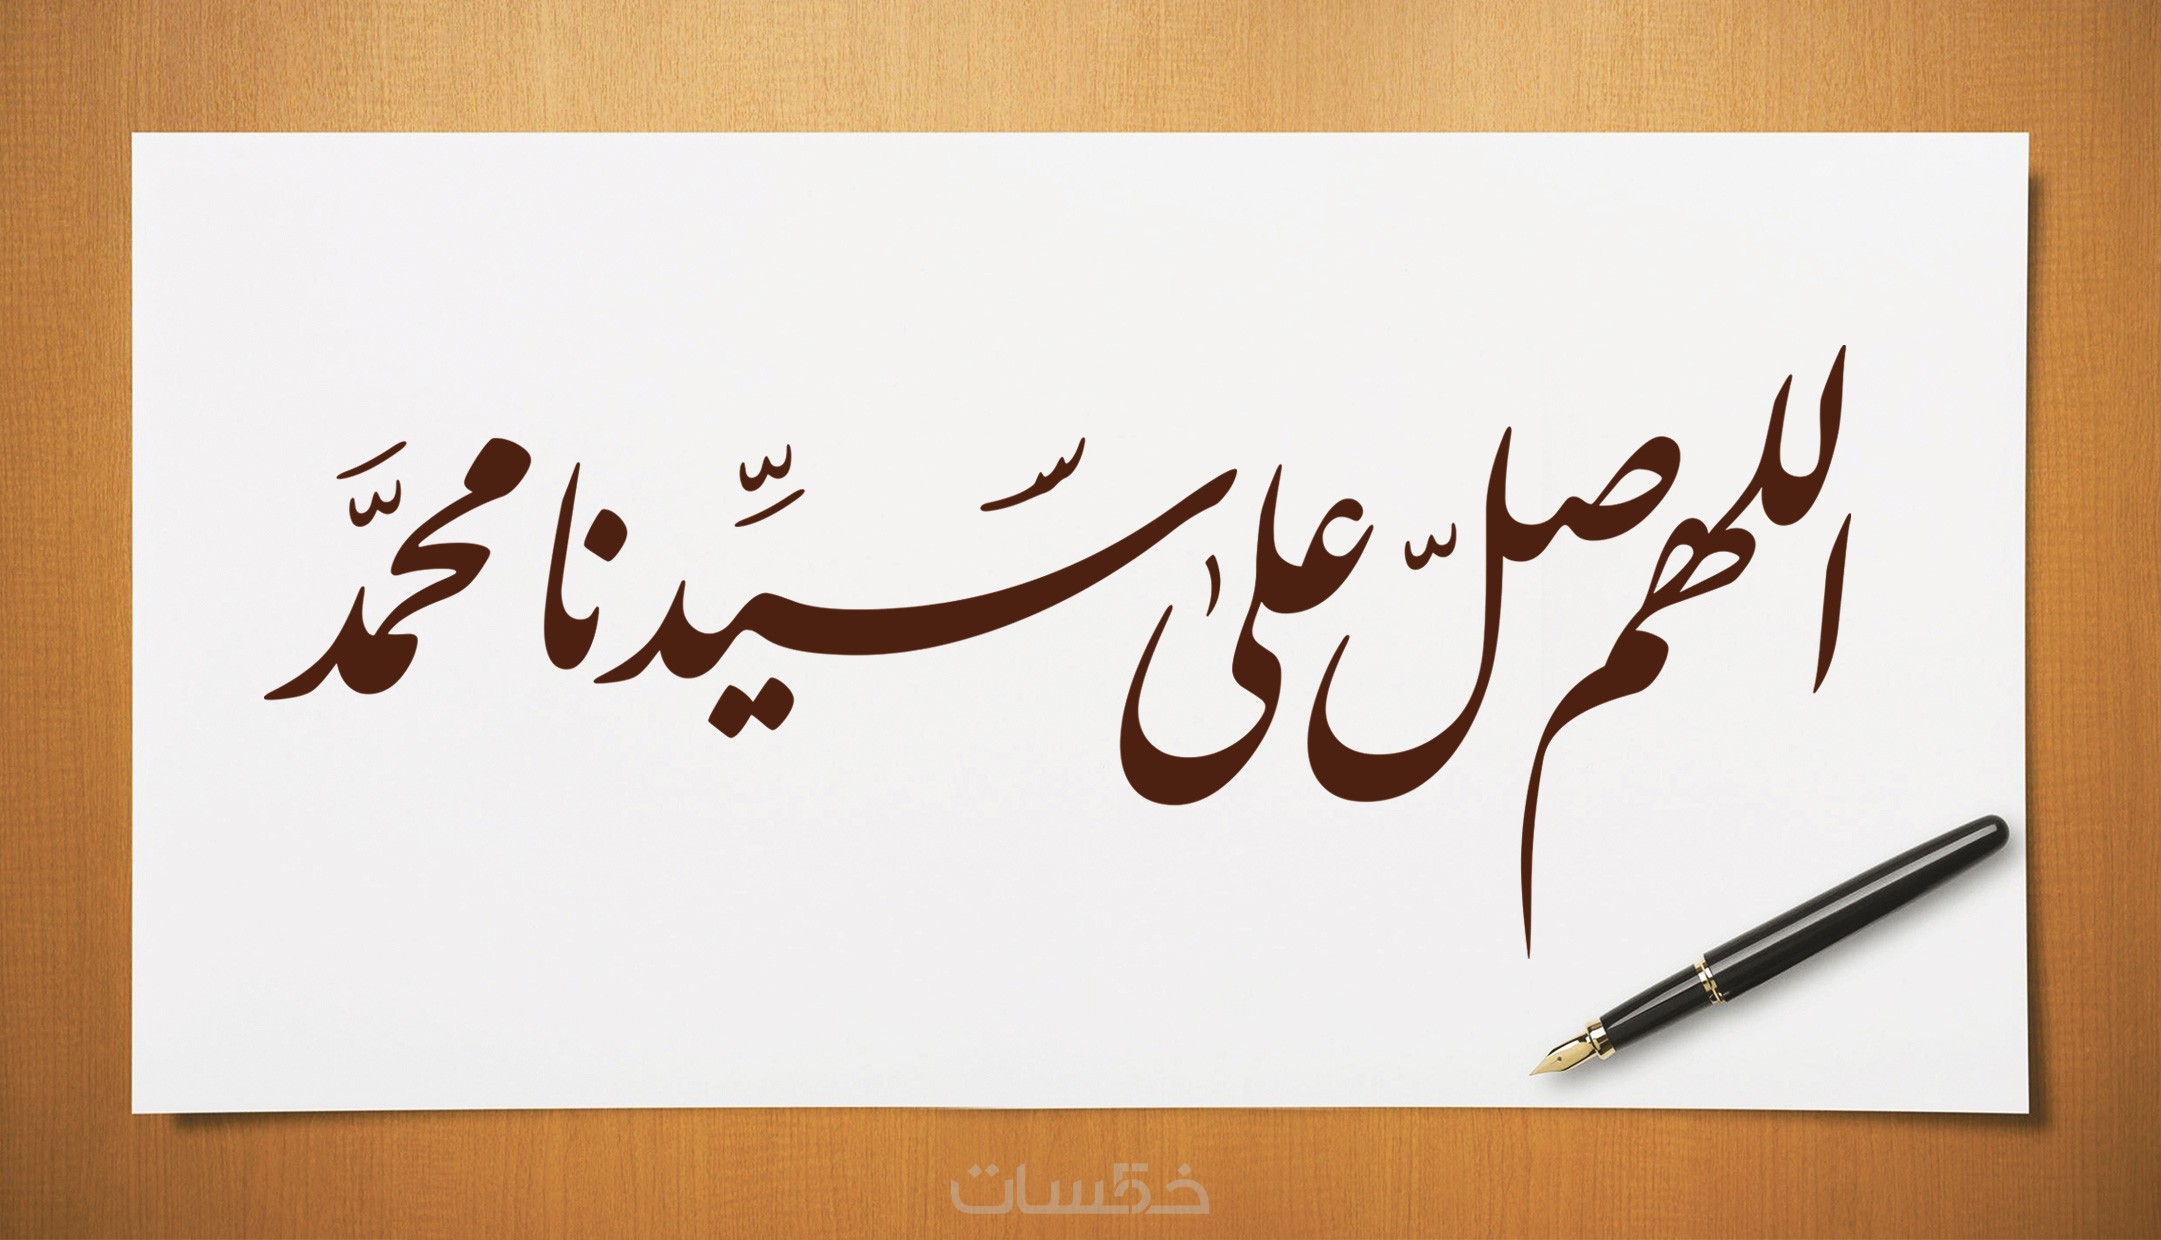 اللهم صلّ على سيّدنا محمّد
خمسات